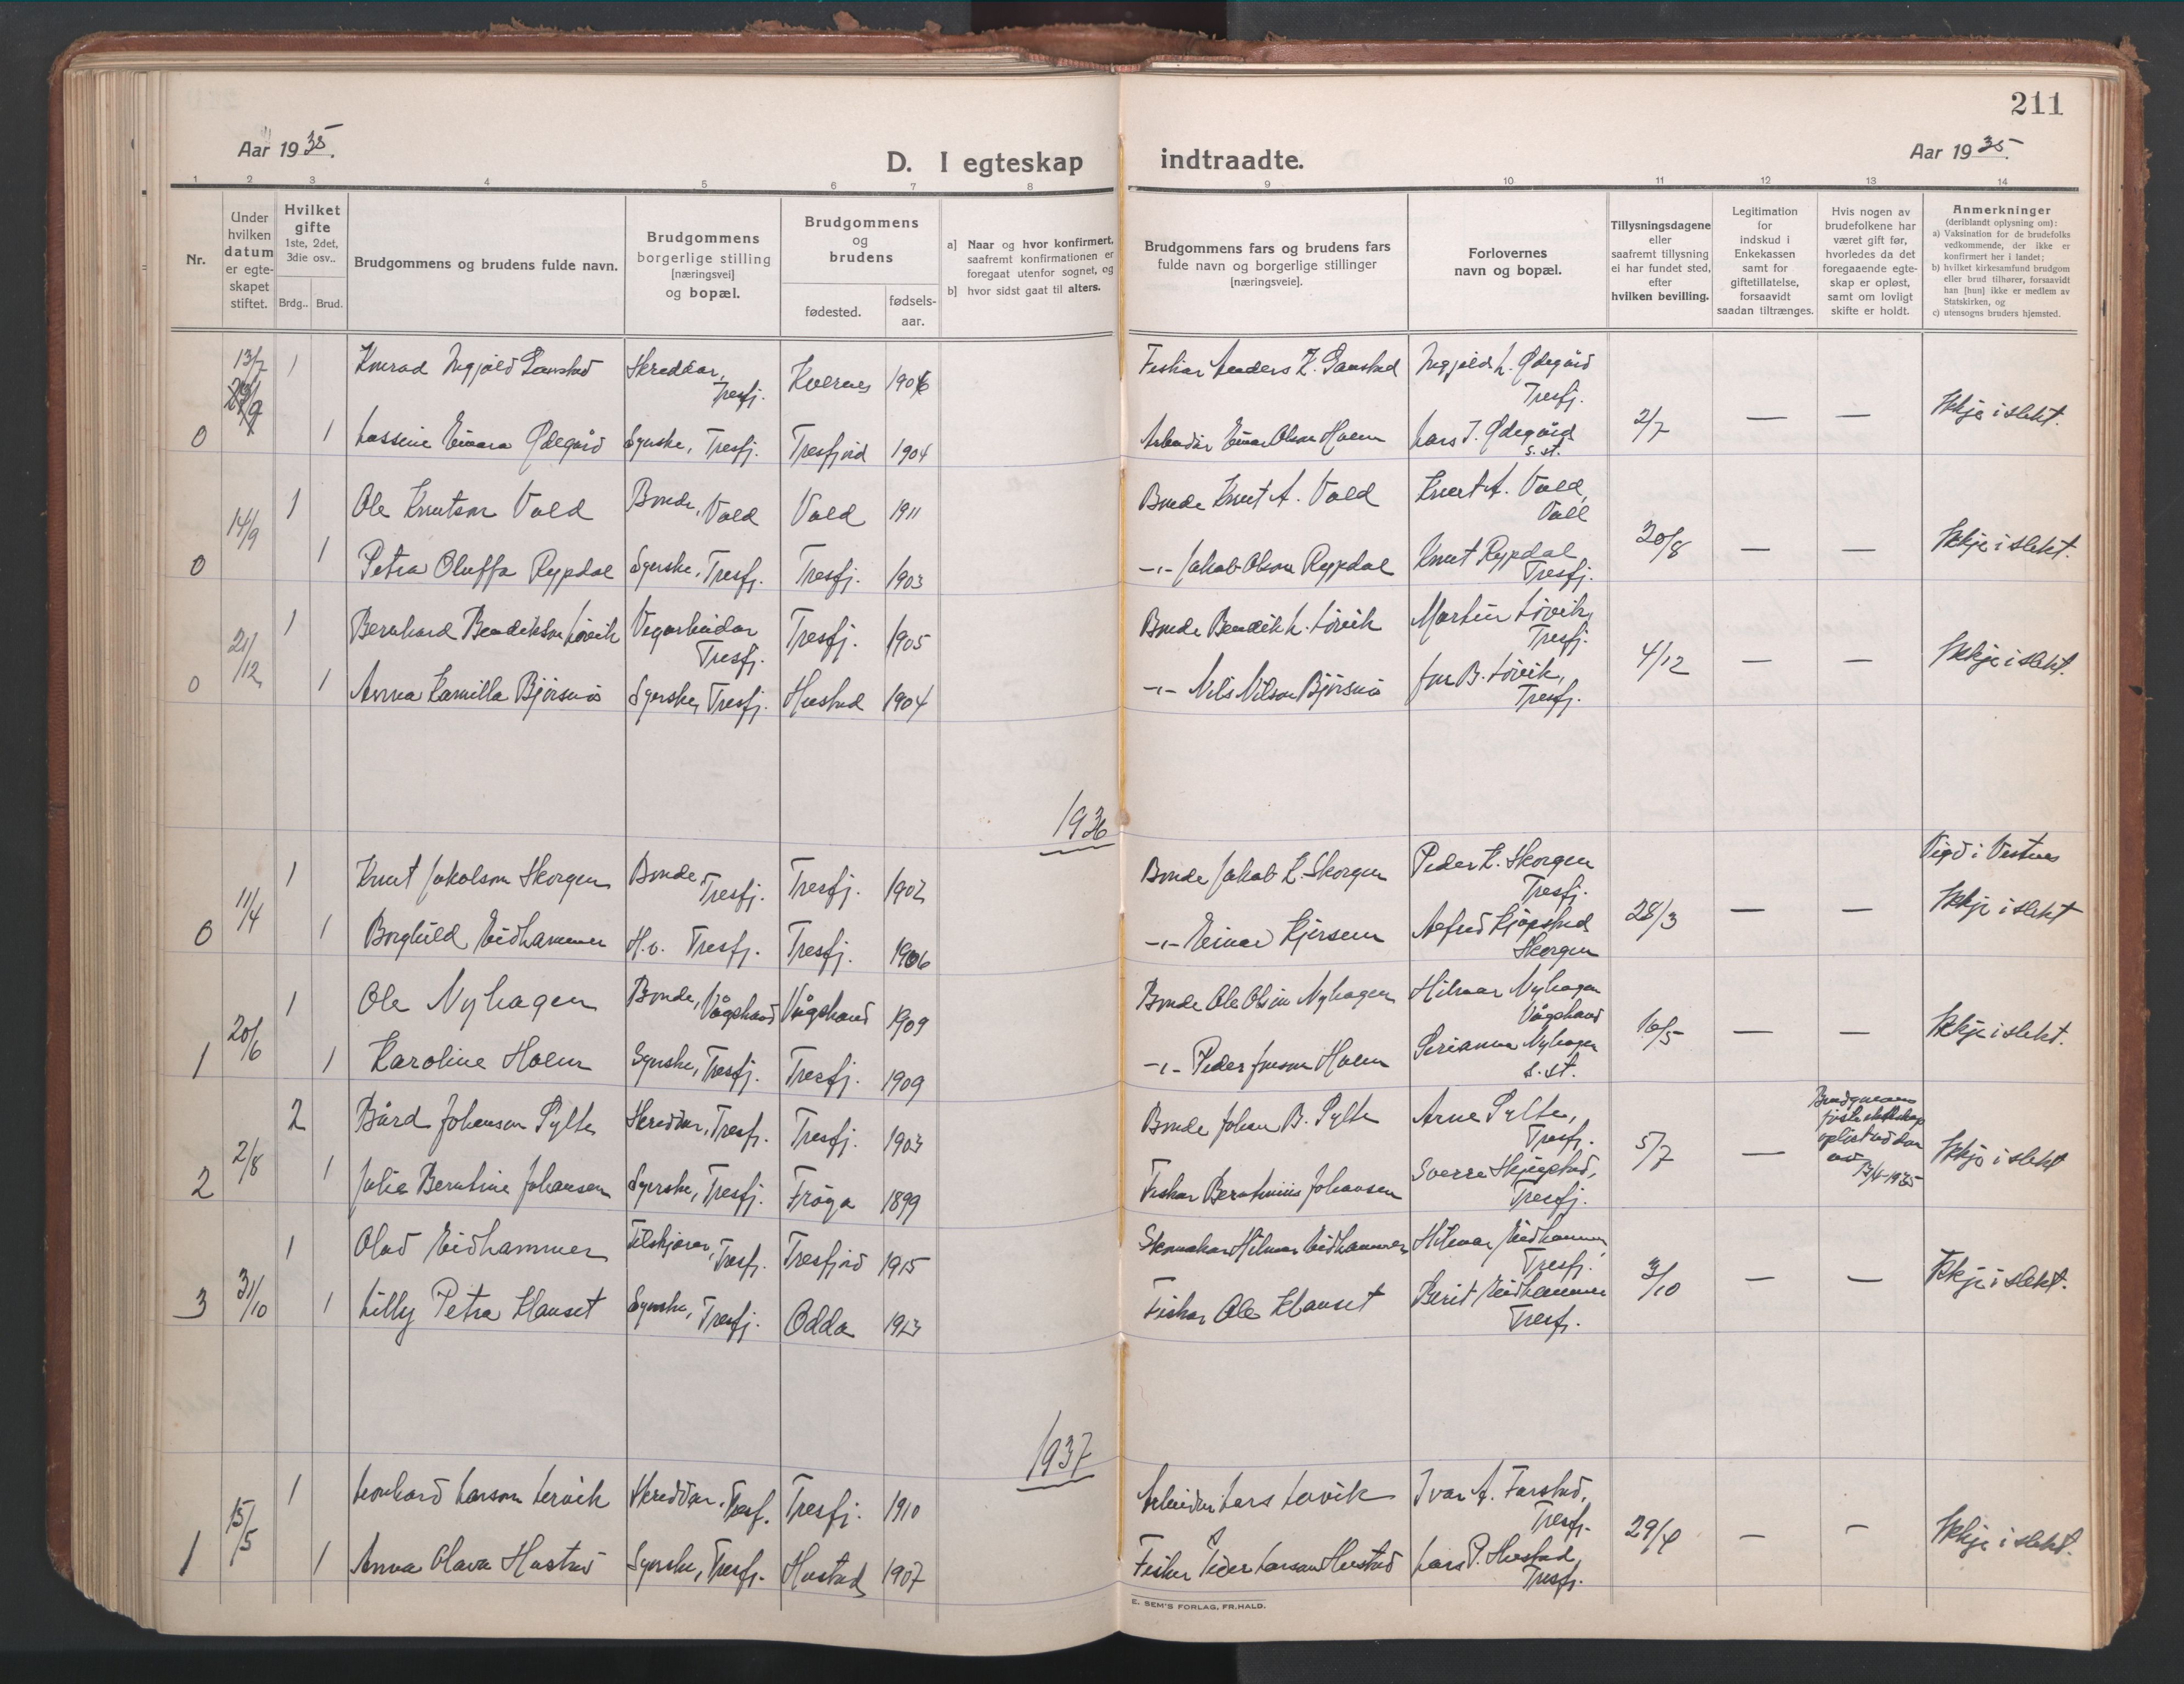 211
Aar 1935.
D. I egteskap indtraadte.
Aar 1935.
1 2 3 4 5 6 7 8 9 10 11 12 13 14
Nr.
Under hvilken datum er egteskapet stiftet.
Hvilket gifte 1ste, 2det, 3die osv..
Brdg.. Brud.
Brudgommens og brudens fulde navn.
Brudgommens borgerlige stilling [næringsvei] og bopæl.
Brudgommens og brudens
fødested.
fødsels-aar.
a] Naar og hvor konfirmert, saafremt konfirmationen er foregaat utenfor sognet, og
b] hvor sidst gaat til alters.
Brudgommens fars og brudens fars fulde navn og borgerlige stillinger [næringsveie].
Forlovernes navn og bopæl.
Tillysningsdagene eller saafremt tillysning ei har fundet sted, efter hvilken bevilling.
Legitimation for indskud i Enkekassen samt for giftetillatelse, forsaavidt saadan tiltrænges.
Hvis nogen av brudefolkene har været gift før, hvorledes da det foregaaende egteskap er opløst, samt om lovligt skifte er holdt.
Anmerkninger (deriblandt oplysning om):
a) Vaksination for de brudefolks vedkommende, der ikke er konfirmert her i landet;
b) hvilket kirkesamfund brudgom eller brud tilhører, forsaavidt han [hun] ikke er medlem av Statskirken, og
c) utensogns bruders hjemsted.
13/7 1 Konrad Ingjald Gaustad Skreddar, Tresfj. Kvernes 1906 Fiskar Anders K. Gaustad Ingjald L. Ødegård Tresfj.
0 1 Lassine Einara Ødegård Syerske, Tresfj. Tresfjord 1904 Arbeidar Einar Olson Holm Lars I. Ødegård s. st. 2/7 — — Ikkje i slekt.
14/9 1 Ole Knutson Vold Bonde, Vold Vold 1911 Bonde Knut A. Vold Knut A. Vold, Vold
0 1 Petra Oluffa Rypdal Syerske, Tresfj. Tresfj. 1903 -"- Jakob Olson Rypdal Knut Rypdal Tresfj. 20/8 — — Ikkje i slekt.
21/12 1 Bernhard Bendikson Løvik Vegarbeidar Tresfj. Tresfj. 1905 Bonde Bendik L. Løvik Martin Løvik, Tresfj.
0 1 Anna Kamilla Bjørsnøs Syerske, Tresfj. Hustad 1904 -"- Nils Nilson Bjørsnøs Jon B. Løvik, Tresfj. 4/12 — — Ikkje i slekt.
1936
11/4 1 Knut Jakobson Skorgen Bonde, Tresfj. Tresfj. 1902 Bonde Jakob K. Skorgen Peder K. Skorgen Tresfj. Vigd i Vestnes
0 1 Borghild Eidhammer H.v. Tresfj. Tresfj. 1906 -"- Einar Kjersem Skorgen 28/3 — — Ikkje i slekt
20/6 1 Ole Nyhagen Bonde, Vågstrand Vågstrand 1909 Bonde Ole Olson Nyhagen Hilmar Nyhagen Vågstrand
1 1 Karoline Holm Syerske, Tresfj. Tresfj. 1909 -"- Peder Jonson Holm Nyhagen s. st. 16/5 — — Ikkje i slekt.
2/8 2 Bård Johanson Sylte Skreddar, Tresfj. Tresfj. 1903 Bonde Johan B. Sylte Arne Sylte, Tresfj. Brudgomens fyrste ekteskap oplöst 13/4-1935
2 1 Julie Berntine Johansen Syerske, Tresfj. Frøya 1899 Fiskar Berntinius Johansen Sverre Skjegstad, Tresfj. 5/7 — Ikkje i slekt
31/10 1 Olav Eidhammer Filskjerar, Tresfj. Tresfjord 1915 Skomakar Hilmar Eidhammer Hilmar Eidhammer, Tresfj.
3 1 Lilly Petra Klauset Syerske, Tresfj. Odda 1913 Fiskar Ole Klauset Berit Eidhammer Tresfj. 3/10 — — Ikkje i slekt.
1937
15/5 1 Leonhard Larson Lervik Skreddar, Tresf. Tresfj. 1910 Arbeidar Lars Lervik Ivar A. Farstad, Tresfj.
1 1 Anna Olava Hustad Syerske, Tresfj. Hustad 1907 Fisker Peder Larson Hustad Lars P. Hustad Tresfj. 29/4 — — Ikkje i slekt.
E. SEM'S FORLAG, FR.HALD.